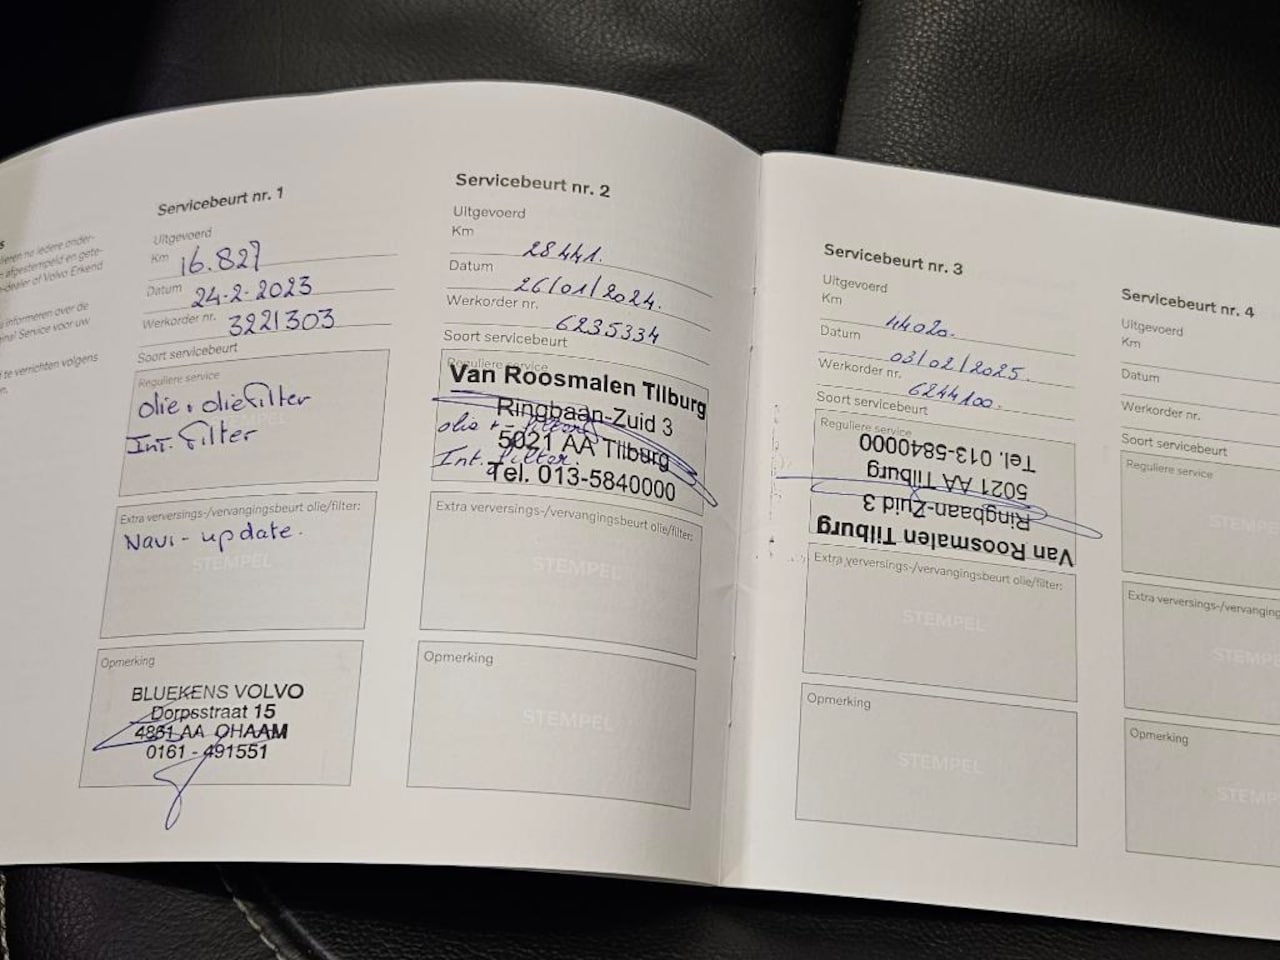 s
lleren na iedere onder-
n afgestempeld en gete-
-dealer of Volvo Erkend
u informeren over de
ginal Service voor uw
t te verrichten volgens
n.
Servicebeurt nr. 1
Uitgevoerd
Km 16.827
Datum 24-2-2023
Werkorder nr. 3221303
Soort servicebeurt
Reguliere service
olie, oliefilter
Int. filter
Extra verversings-/vervangingsbeurt olie/filter:
Navi-update.
STEMPEL
Opmerking
BLUEKENS VOLVO
Dorpsstraat 15
4861 AA CHAAM
0161 - 491551
Servicebeurt nr. 2
Uitgevoerd
Km 28441.
Datum 26/01/2024.
Werkorder nr. 6235334
Soort servicebeurt
Reguliere service
Van Roosmalen Tilburg
Ringbaan-Zuid 3
olie +- filter
5021 AA Tilburg
Int. filter.
Tel. 013-5840000
Extra verversings-/vervangingsbeurt olie/filter:
STEMPEL
Opmerking
STEMPEL
Servicebeurt nr. 3
Uitgevoerd
Km 44020.
Datum 03/02/2025.
Werkorder nr. 6244100.
Soort servicebeurt
Reguliere service
Van Roosmalen Tilburg
Ringbaan-Zuid 3
5021 AA Tilburg
Tel. 013-5840000
Extra verversings-/vervangingsbeurt olie/filter:
STEMPEL
Opmerking
STEMPEL
Servicebeurt nr. 4
Uitgevoerd
Km
Datum
Werkorder nr.
Soort servicebeurt
Reguliere service
STEMPE
Extra verversings-/vervanging
STEMPE
Opmerking
STEMP